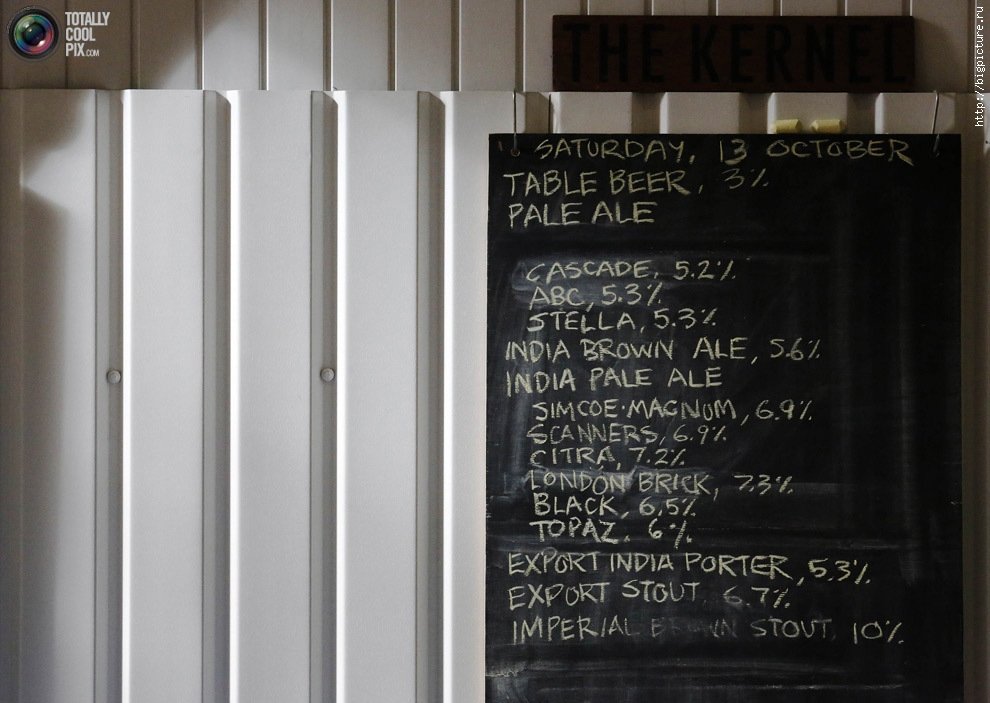 TOTALLY
COOL
PIX.COM
http://bigpicture.ru
THE KERNEL
SATURDAY, 13 OCTOBER
TABLE BEER, 3%
PALE ALE
CASCADE, 5.2%
ABC, 5.3%
STELLA, 5.3%
INDIA BROWN ALE, 5.6%
INDIA PALE ALE
SIMCOE·MAGNUM, 6.9%
SCANNERS, 6.9%
CITRA, 7.2%
LONDON BRICK, 7.3%
BLACK, 6.5%
TOPAZ. 6%
EXPORT INDIA PORTER, 5.3%
EXPORT STOUT, 6.7%
IMPERIAL BROWN STOUT, 10%